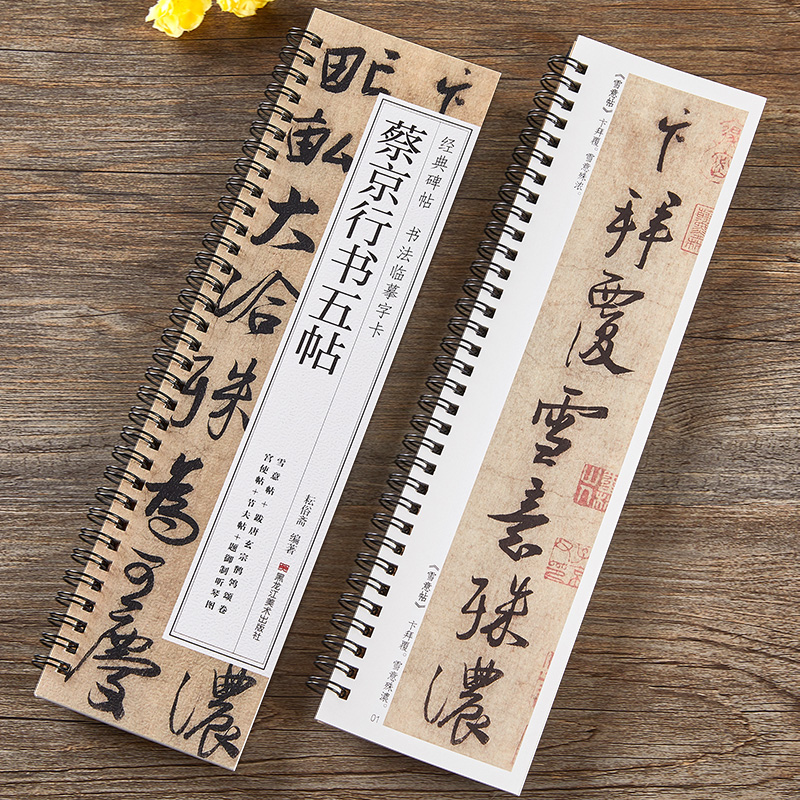 经典碑帖 书法临摹字卡
蔡京行书五帖
雪意帖+跋唐玄宗鹡鸰颂卷
宫使帖+节夫帖+题御制听琴图
耘俗斋 编著
黑龙江美术出版社
卞
濃
甿畝大洽殊為可慶
《雪意帖》 卞拜覆。雪意殊浓。
卞拜覆雪意殊濃
《雪意帖》 卞拜覆。雪意殊濃。
01